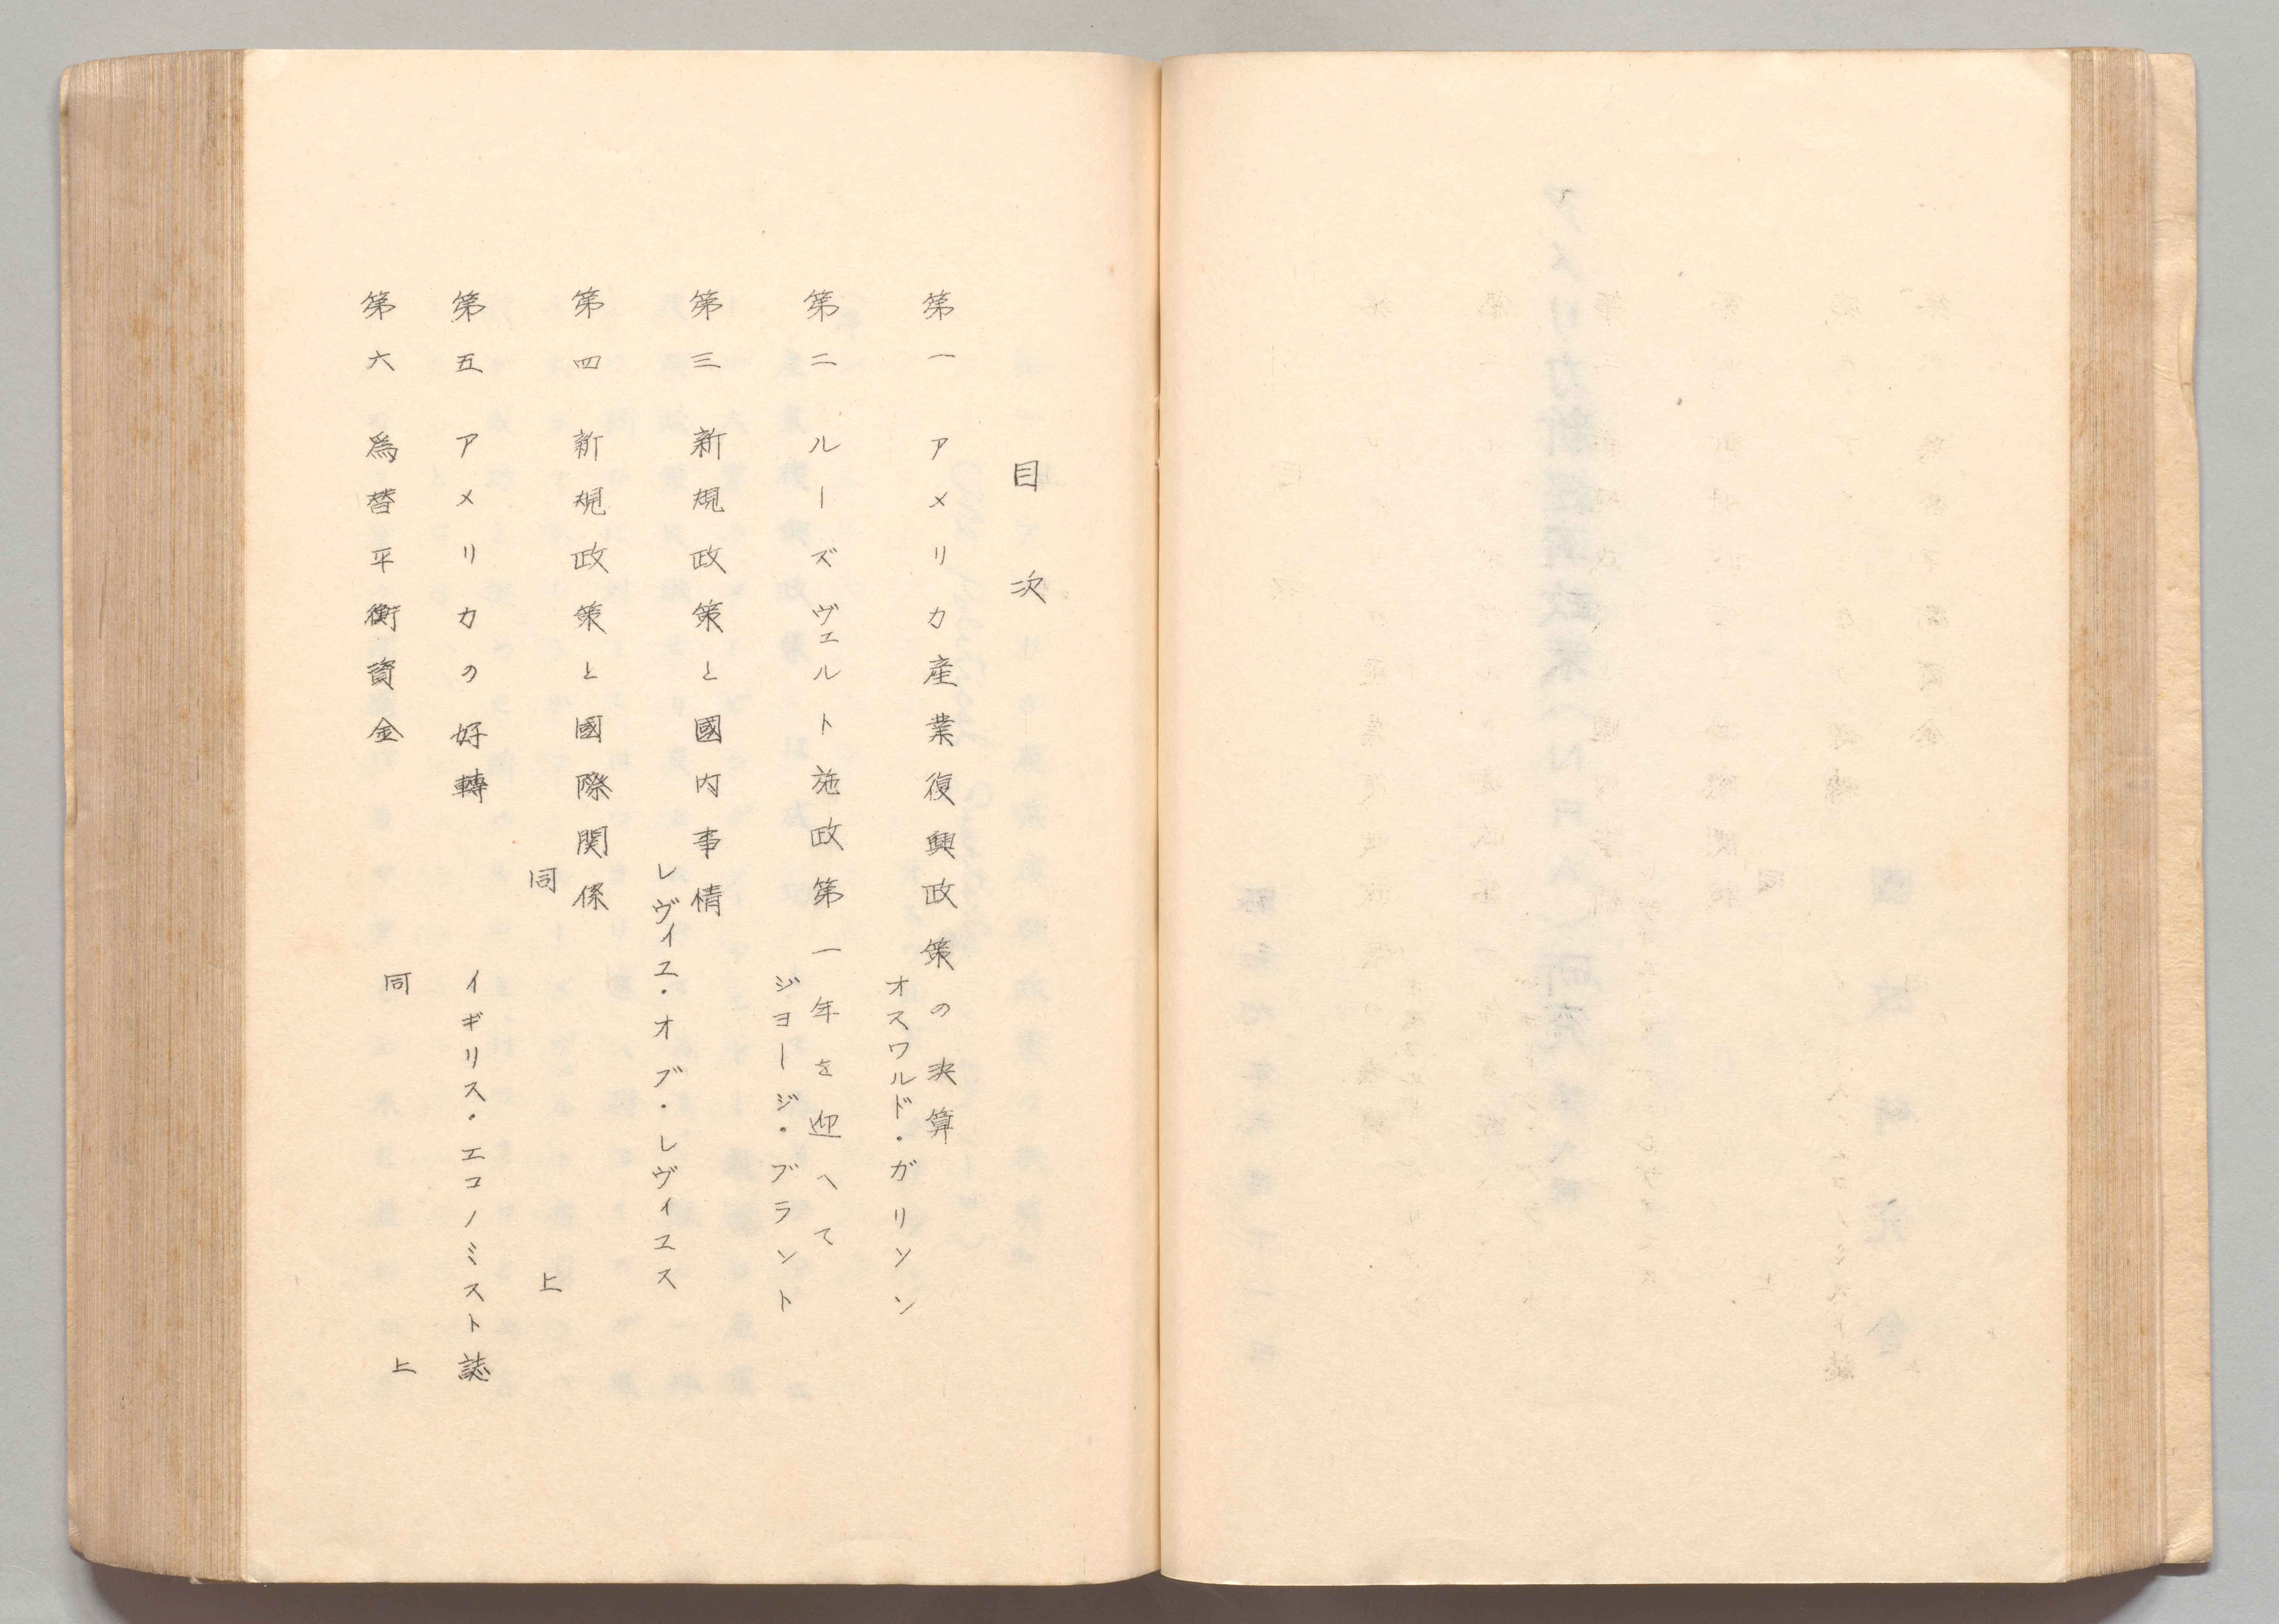 目次
第一 アメリカ産業復興政策の決算
オスワルド・ガリソン
第二 ルーズヴェルト施政第一年を迎へて
ジヨージ・ブラント
第三 新規政策と國内事情
レヴイユ・オブ・レヴイユス
第四 新規政策と國際関係
同上
第五 アメリカの好轉
イギリス・エコノミスト誌
第六 爲替平衡資金
同上